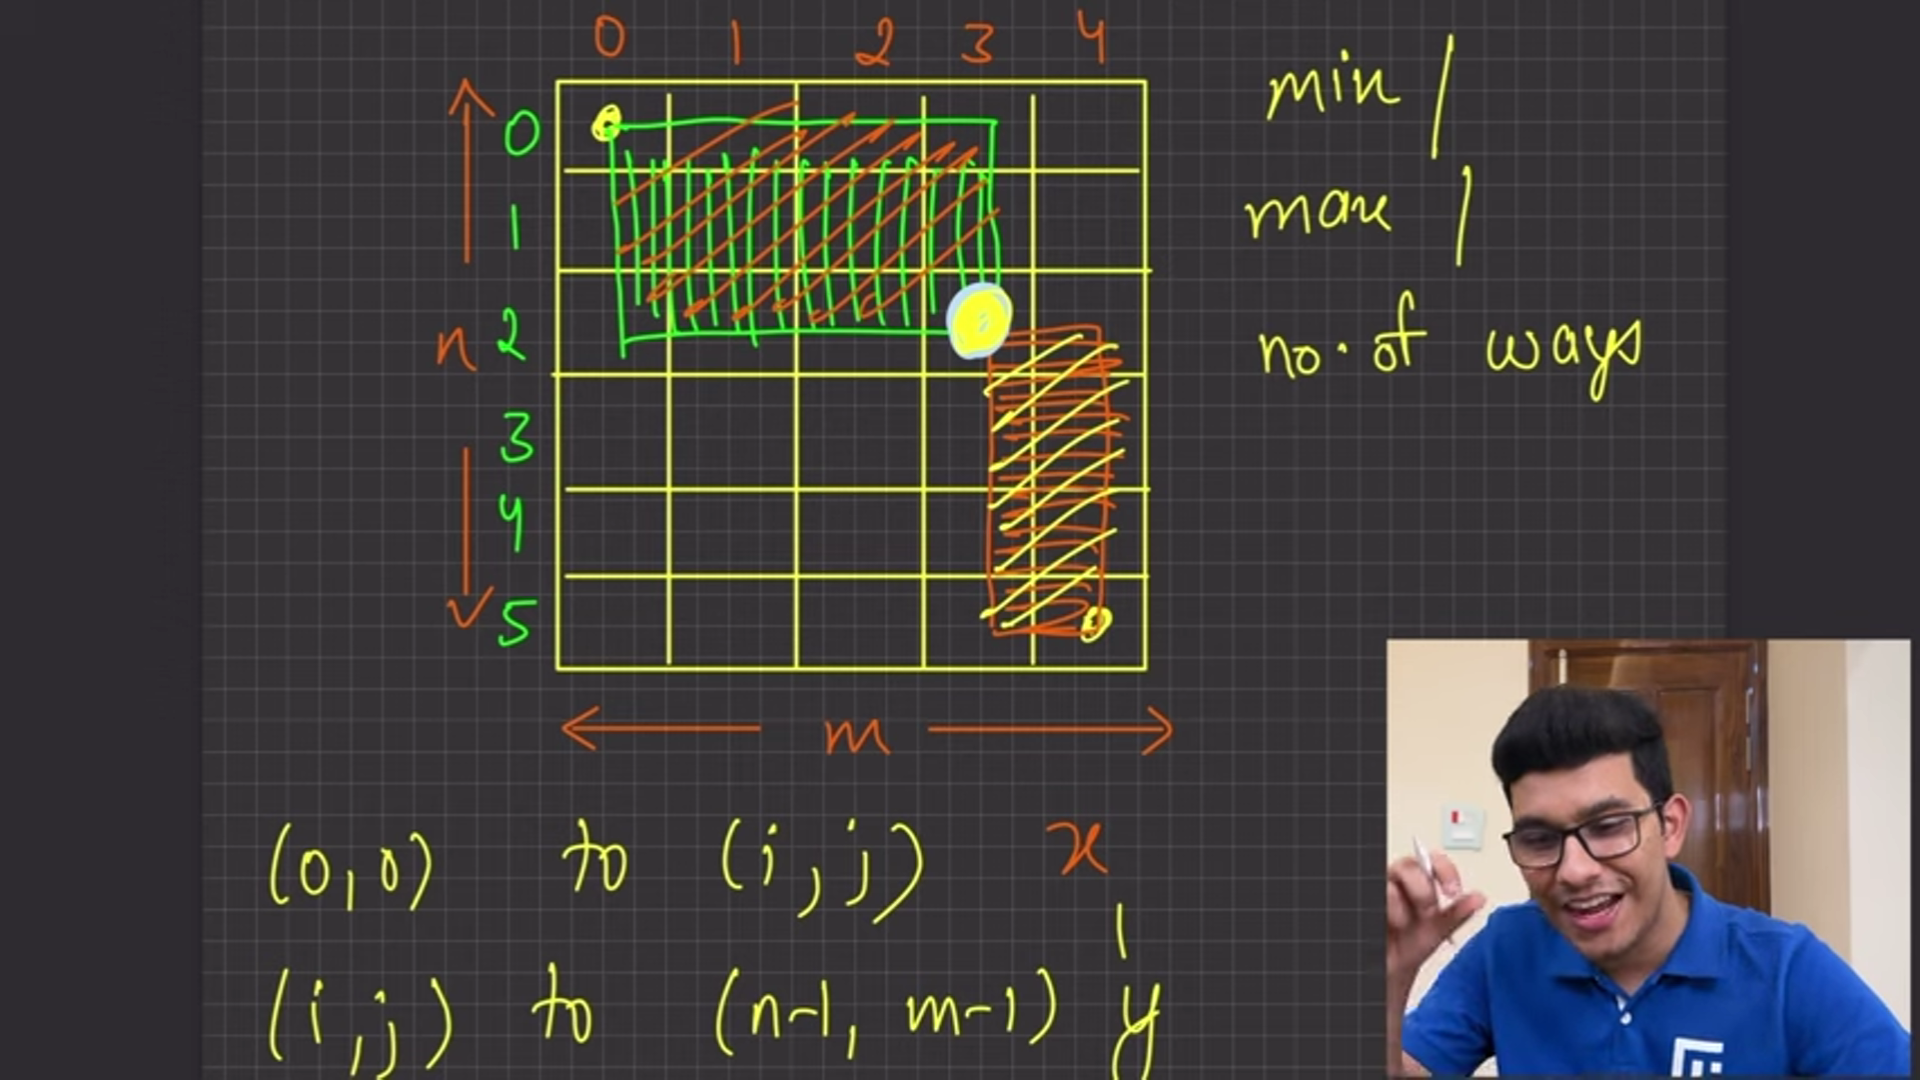 0 1 2 3 4
0
1
n 2
3
4
5
m
min /
max /
no. of ways
(0,0) to (i,j) x
(i,j) to (n-1, m-1) y